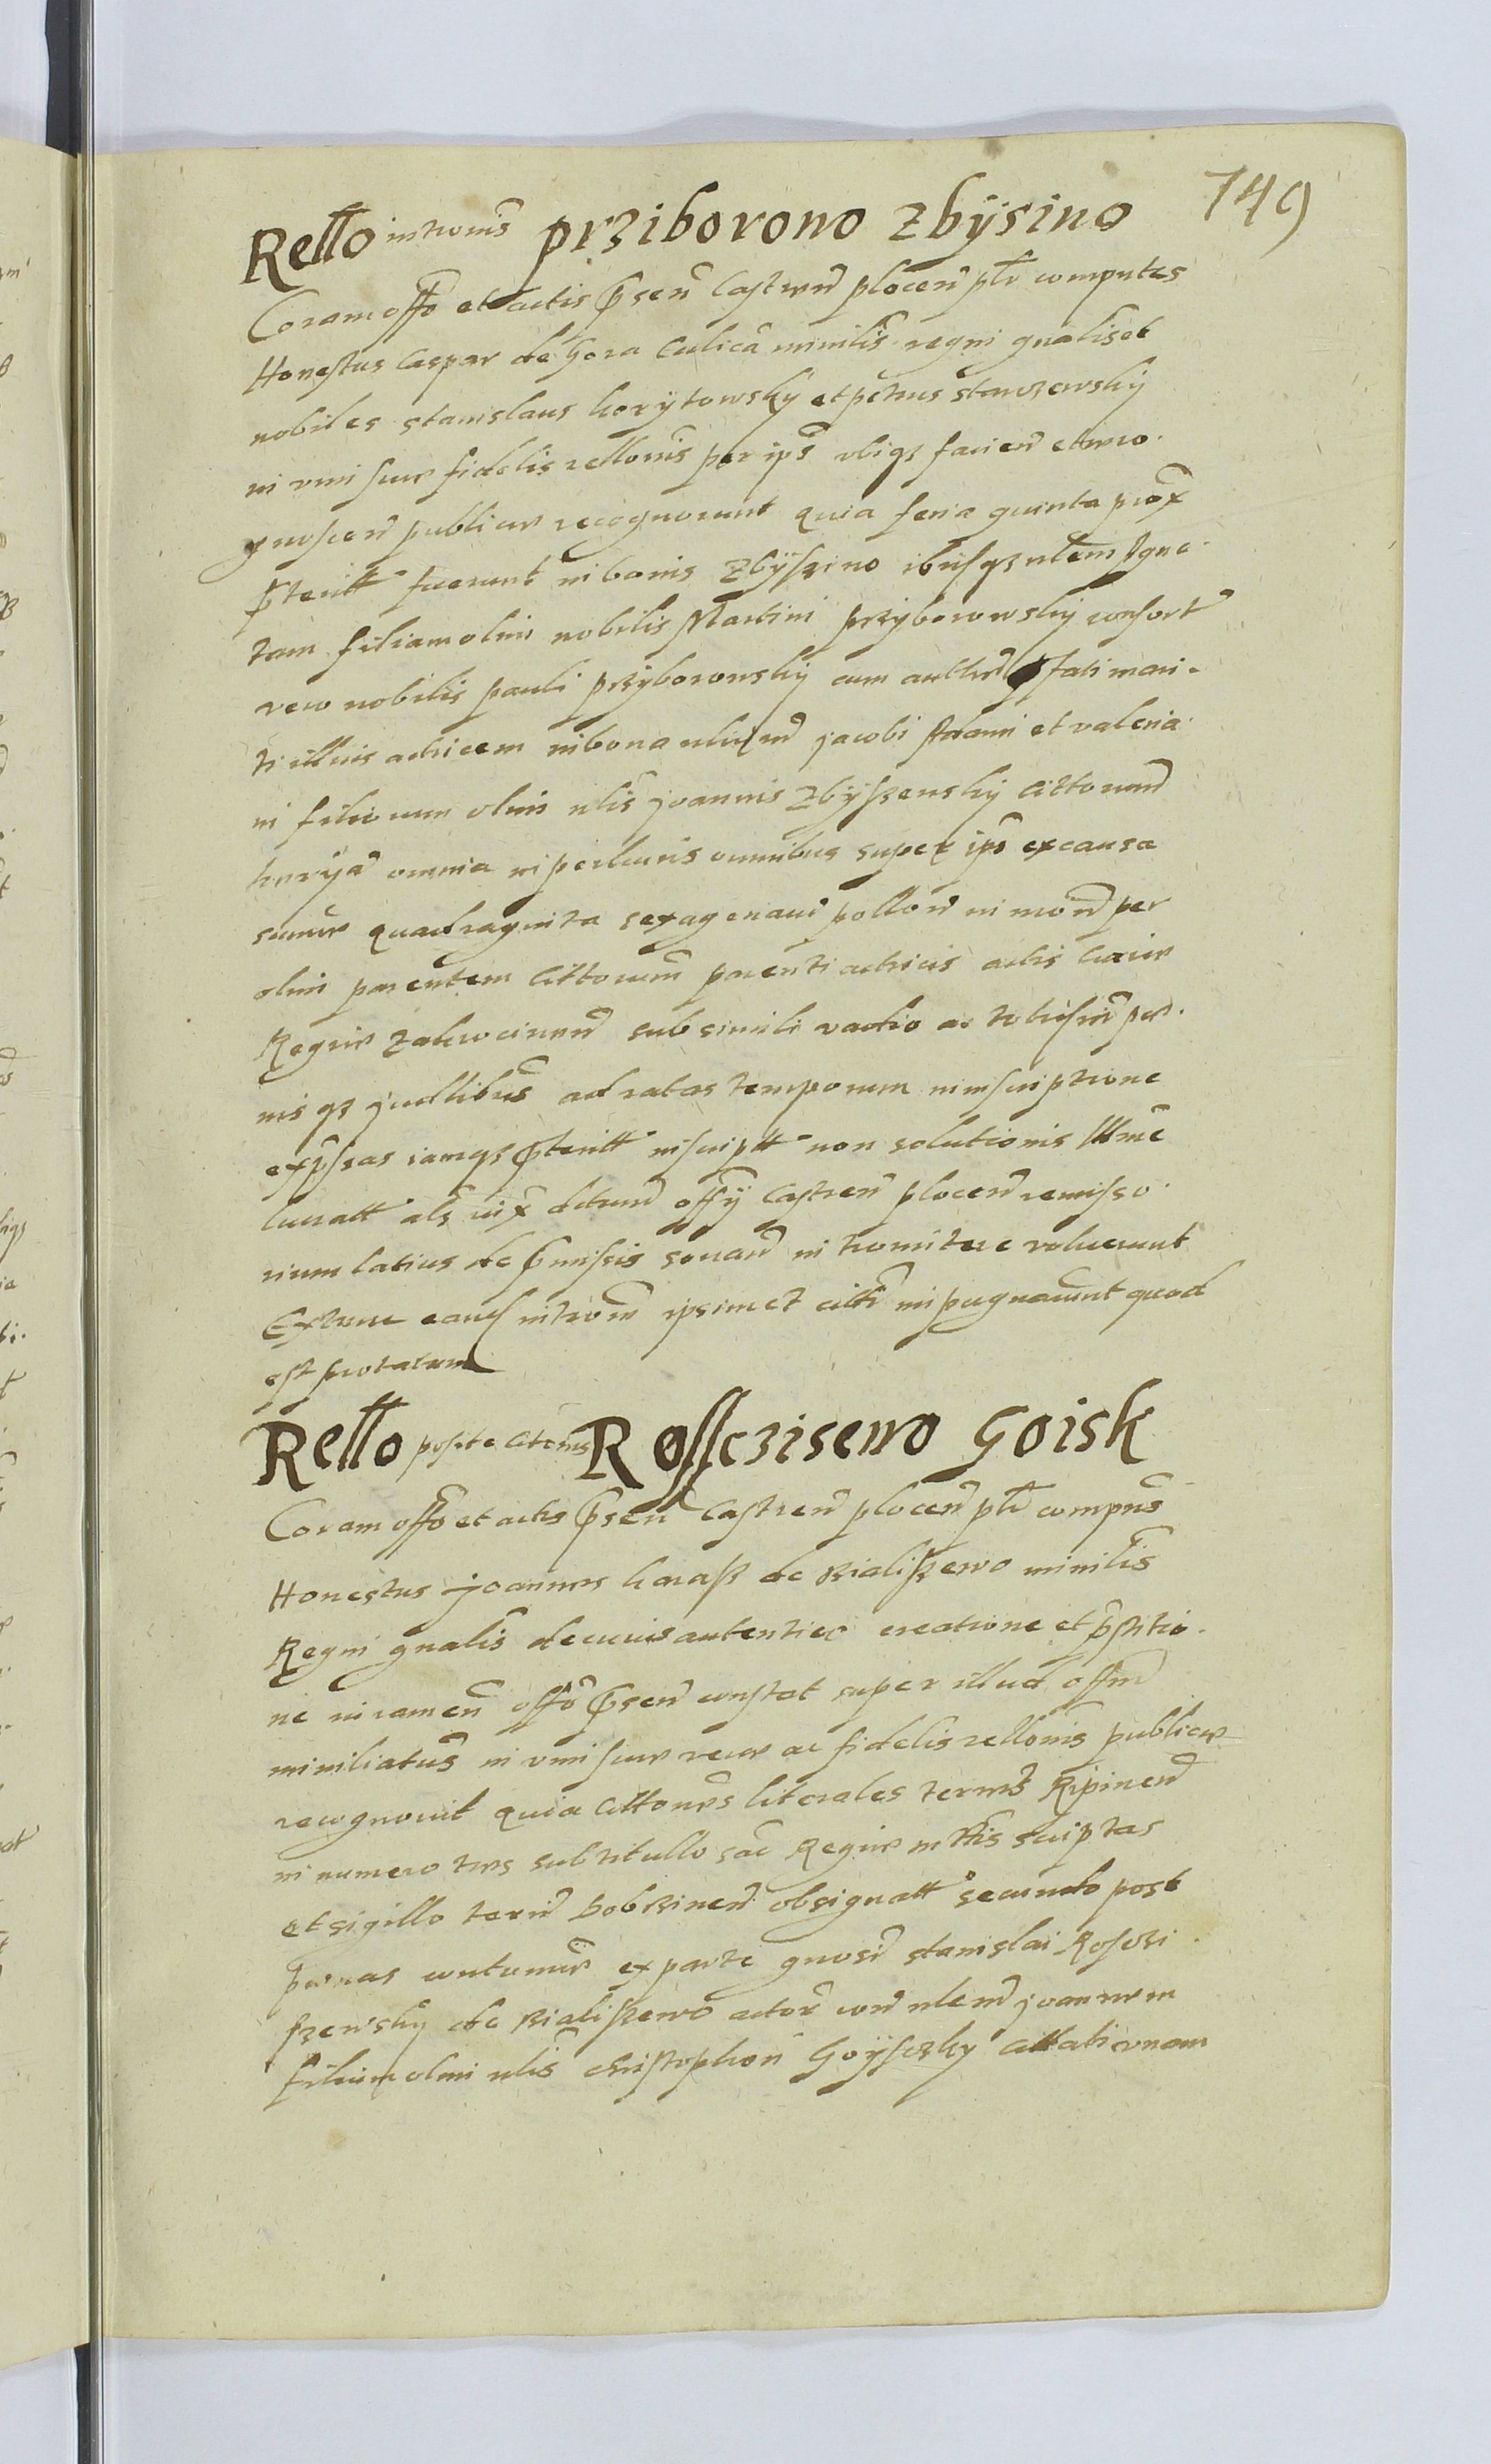 749
Rello intrōnis prziborowo zbÿsino
Coram offō et actis p̄sen̄ Castren̄ plocen̄ plr̄ computes
Honestus Caspar de Gora Culicā minilis regni gnalis et
nobiles stanislaus korÿtowskÿ et petrus stanzewskÿ
in vim suæ fidelis rellonis per ipō vbiqȝ facien̄ et reco
gnoscen̄ publicæ recognouerunt quia feria quinta prox̄
p̄teritt fuerunt in bonis Zbÿszino ibiqȝ nlem Agne
tam filiam olim nobilis Martini przÿborowskÿ consort̄
vero nobilis pauli przÿborowskÿ cum aucthē fati mari
ti illius actricem in bona nliūm jacobi Adami et valeria
ni filiorum olim nlis joannis Zbÿszenskÿ Cittorum̄
omnia in perlucris omnibus super ipō ex causa
summæ quadraginta sexagenarū pollon̄ in mon̄ per
olim parentem Cittorum̄ parenti actricis actis
Regiæ Zakrocimen̄ sub simili vadio ac
nis qȝ judlibus ad ratas temporum in inscriptione
exp̄ssas iamqȝ p̄teritt inscriptt non solutionis
lucratt als iux̄ dctum̄ offÿ Castren̄ plocen̄ remisso
rium latius de p̄missis sonan̄ intromittere voluerunt
Extunc eand̄ introm̄ ipsimet citti impugnauerunt quod
est protatum
Rello posite Citōnis Rossczisewo Goisk
Coram offō et actis p̄sen̄ Castren̄ plocen̄ plr̄ compns̄
Honestus joannes karass de Bialiszewo minilis
Regni gnalis de cuius autentico creatione et p̄stitio
ne iuramen̄ offō p̄sen̄ constat super illud offm̄
miniliatus in vim suæ veræ ac fidelis rellonis publicæ
recognouit quia Cittones literales terres Ripinen̄
in numero tres sub titullo sac Regiæ mttis scriptas
et sigillo terrē Dobrzinen̄ obsignatt secundo post
penas contumæ ex parte gnosi stanislai Rosczi
szewskÿ de Bialiszewo actor con̄ nlem joannem
filium olim nlis christophori Goÿsczkÿ Cittati vnam